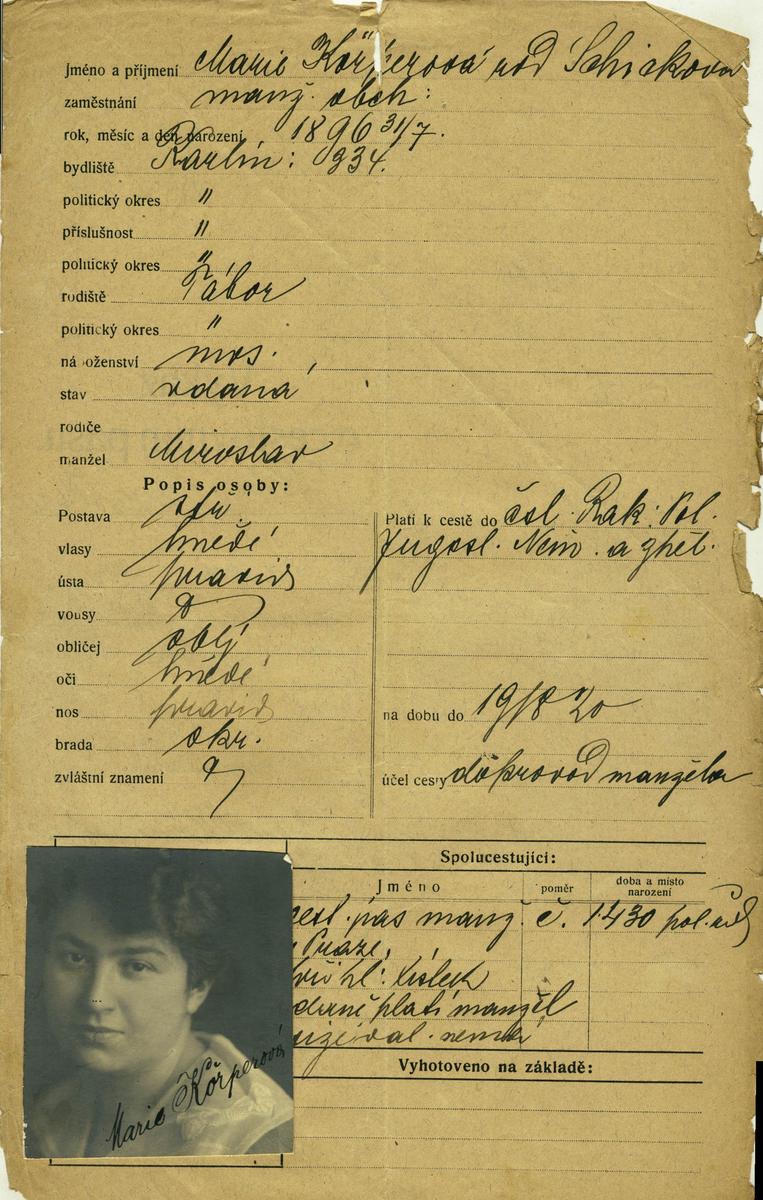 Jméno a příjmení Marie Körperová rod Schickova
zaměstnání manž. obch:
rok, měsíc a den narození 1896 31/7.
bydliště Karlín: 334.
politický okres "
příslušnost "
politický okres "
rodiště Tábor
politický okres "
náboženství mos.
stav vdaná
rodiče
manžel Miroslav
Popis osoby:
Postava stř.
vlasy hnědé
ústa pravid
vousy
obličej oblý
oči hnědé
nos pravid
brada okr.
zvláštní znamení
Platí k cestě do čsl. Rak: Pol.
Jugosl. Něm. a zpět.
na dobu do 19/8 20
účel cesty doprovod manžela
Spolucestující:
Jméno poměr doba a místo narození
cest. pas manž. č. 1430 pol. řed
v Praze,
platí manžel
nemá
Vyhotoveno na základě:
Marie Körperová